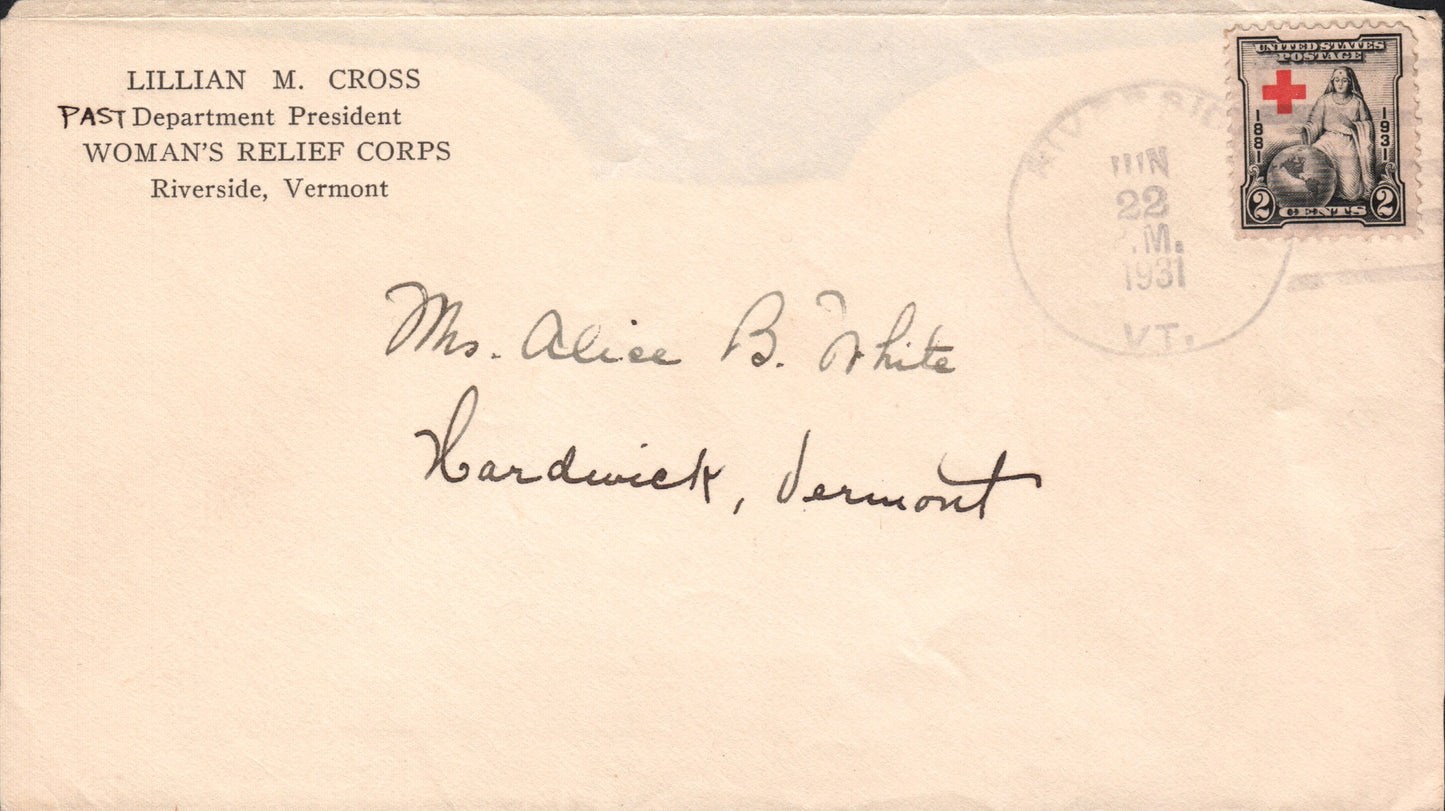 LILLIAN M. CROSS
PAST Department President
WOMAN'S RELIEF CORPS
Riverside, Vermont
UNITED STATES
POSTAGE
1881
1931
2 CENTS 2
RIVERSIDE
JUN
22
.M.
1931
VT.
Mrs. Alice B. White
Hardwick, Vermont